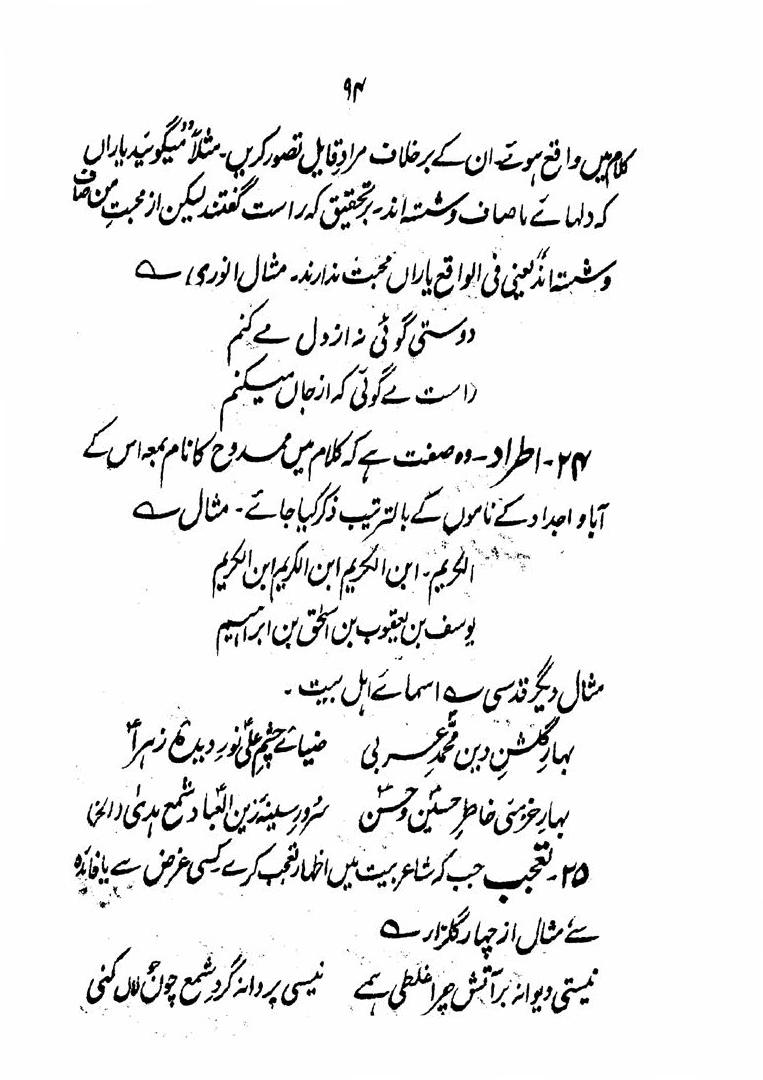 ۹۴
کلام میں واقع ہوئے۔ ان کے برخلاف مرادِ قایل تصور کریں۔ مثلاً "میگوئید یاراں
کہ دلہائے ما صاف و شستہ اند۔ بر تحقیق کہ راست گفتند لیکن از محبتِ من صاف
و شستہ اند" یعنی فی الواقع یاراں محبت ندارند۔ مثال انوری ؎
دوستی گوئی نہ از دل مے کنم
راست مے گوئی کہ از جاں میکنم
۲۴۔ اطراد۔ وہ صفت ہے کہ کلام میں ممدوح کا نام بمعہ اس کے
آبا و اجداد کے ناموں کے بالترتیب ذکر کیا جائے۔ مثال ؎
الکریم۔ ابن الکریم ابن الکریم ابن الکریم
یوسف بن یعقوب بن اسحٰق بن ابراہیم
مثال دیگر قدسی ؎ اسمائے اہل بیت۔
بہارِ گلشنِ دین محمدؐ عربی ضیائے چشمِ علیؑ نورِ دیدۂ زہراؑ
بہارِ خرمئی خاطرِ حسینؑ و حسنؑ سرورِ سینۂ زین العباد شمع ہدیٰ (الخ)
۲۵۔ تعجب جب کہ شاعر بیت میں اظہار تعجب کرے کسی غرض سے یا فائدہ
سے مثال از چہار گلزار ؎
نیستی دیوانہ بر آتش چرا غلطی ہمے نیستی پروانہ گردِ شمع چون کنی